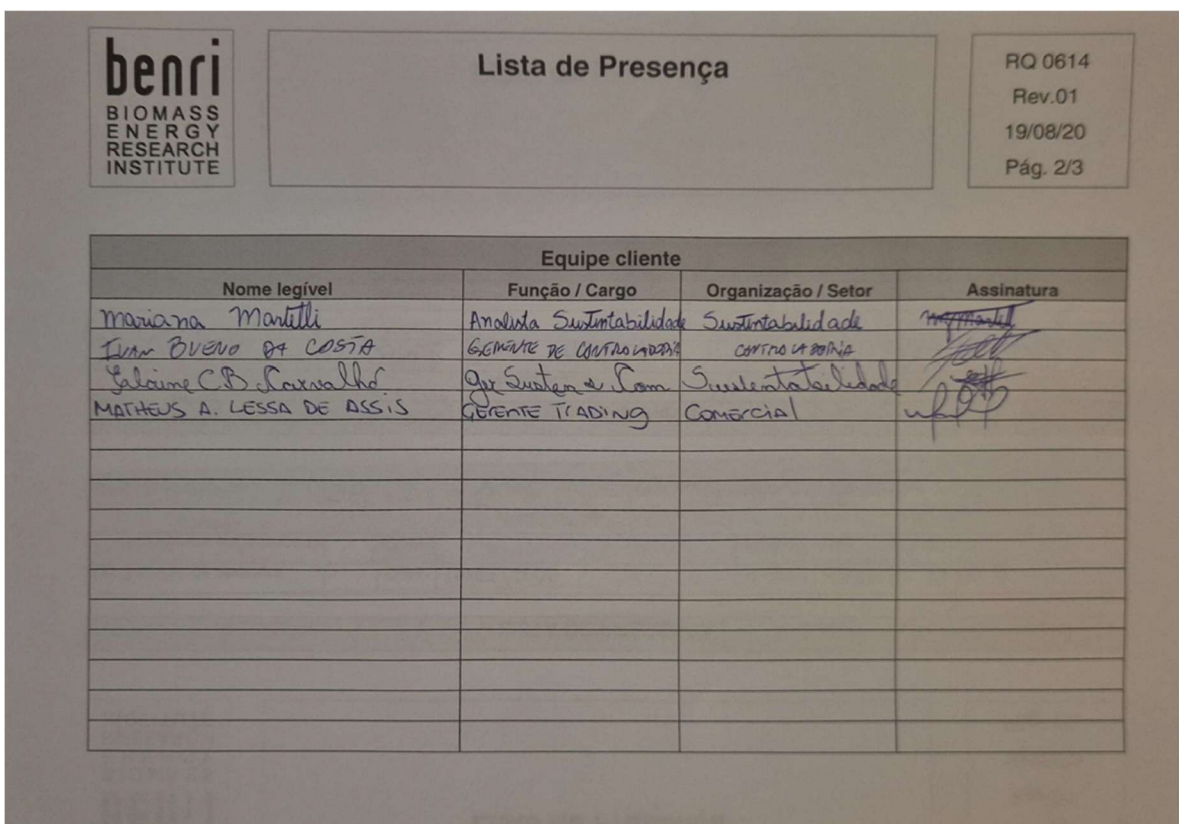 benri
BIOMASS
ENERGY
RESEARCH
INSTITUTE
Lista de Presença
RQ 0614
Rev.01
19/08/20
Pág. 2/3
Equipe cliente
Nome legível Função / Cargo Organização / Setor Assinatura
Mariana Analista Sustentabilidade Sustentabilidade
IVAN BUENO DA COSTA GERENTE DE CONTROLADORIA CONTROLADORIA
C B Carvalho Ger Susten e Com Sustentabilidade
MATHEUS A. LESSA DE ASSIS GERENTE TRADING COMERCIAL